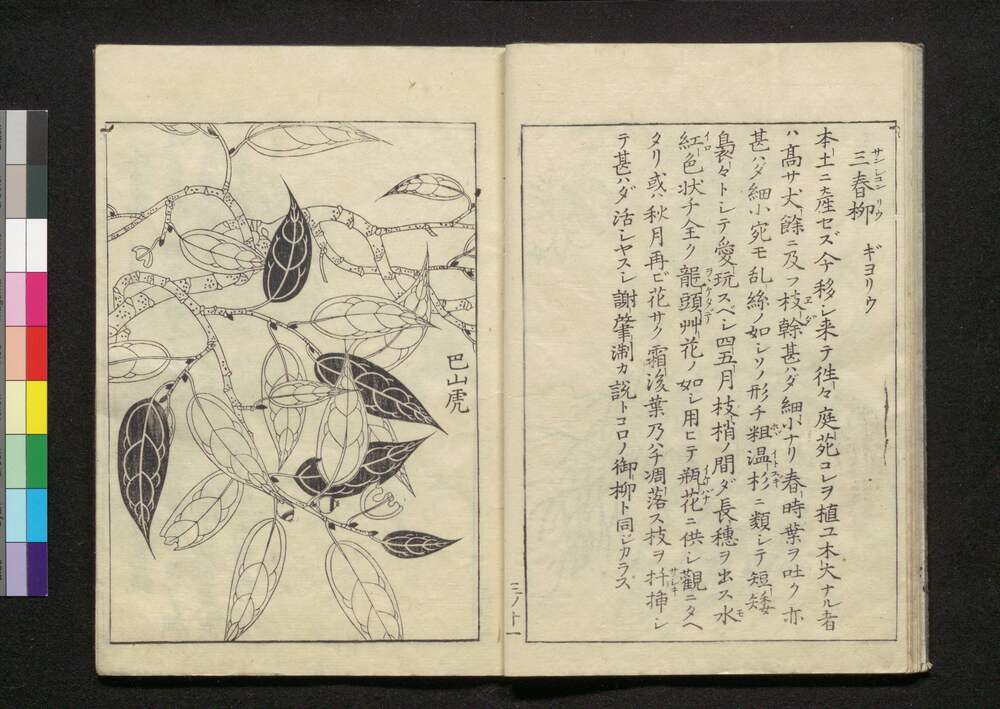 三春柳 ギヨリウ
サンシユンリウ
本土ニ産セズ今移シ来テ徃々庭苑コレヲ植ユ木大ナル者
ハ髙サ丈餘ニ及フ枝幹甚ハダ細小ナリ春時葉ヲ吐ク亦
エダ
甚ハダ細小宛モ乱絲ノ如シソノ形チ粗温杉ニ類シテ短矮
ホヾ イトスギ
裊々トシテ愛玩スベシ四五月枝梢ノ間ダ長穗ヲ出ス水
モ
紅色状チ全ク龍頭艸花ノ如シ用ヒテ瓶花ニ供シ觀ニタヘ
イロ イケバナ
タリ或ハ秋月再ビ花サク霜後葉乃ハチ凋落ス枝ヲ扦挿シ
サシキ
テ甚ハダ活シヤスシ謝肇淛カ説トコロノ御柳ト同ジカラズ
三ノ十一
巴山虎